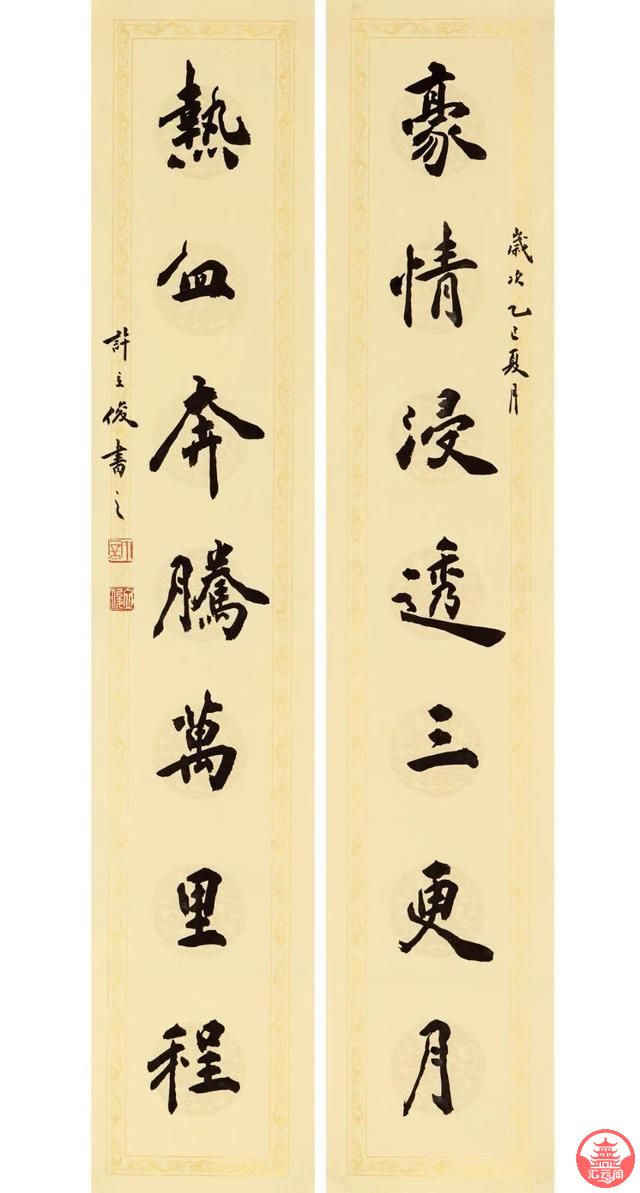 歲次乙巳夏月
豪情浸透三更月
熱血奔騰萬里程
許立俊書之
汇云阁